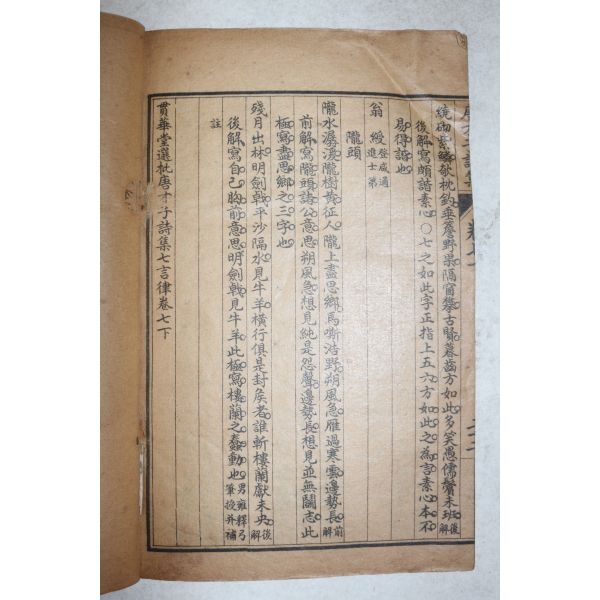 繞砌紫鱗欹枕釣垂簷野果隔窗攀古賢暮齒方如此多笑愚儒鬢未班後解
後解寫頗諧素心〇七之如此字正指上五六方如此之為言素心本不
易得諧也
翁綬登咸通進士第
隴頭
隴水潺湲隴樹黃征人隴上盡思鄉馬嘶浩野朔風急雁過寒雲邊勢長前解
前解寫隴頭諸公意思朔風急想見純是怨聲邊勢長想見並無鬬志此
極寫盡思鄉之三字也
殘月出林明劍戟平沙隔水見牛羊橫行俱是封矦者誰斬樓蘭獻未央後解
後解寫自己胸前意思明劍戟見牛羊此極寫樓蘭之蠢動也男雍釋弓筆授并補
註
貫華堂選批唐才子詩集七言律卷七下